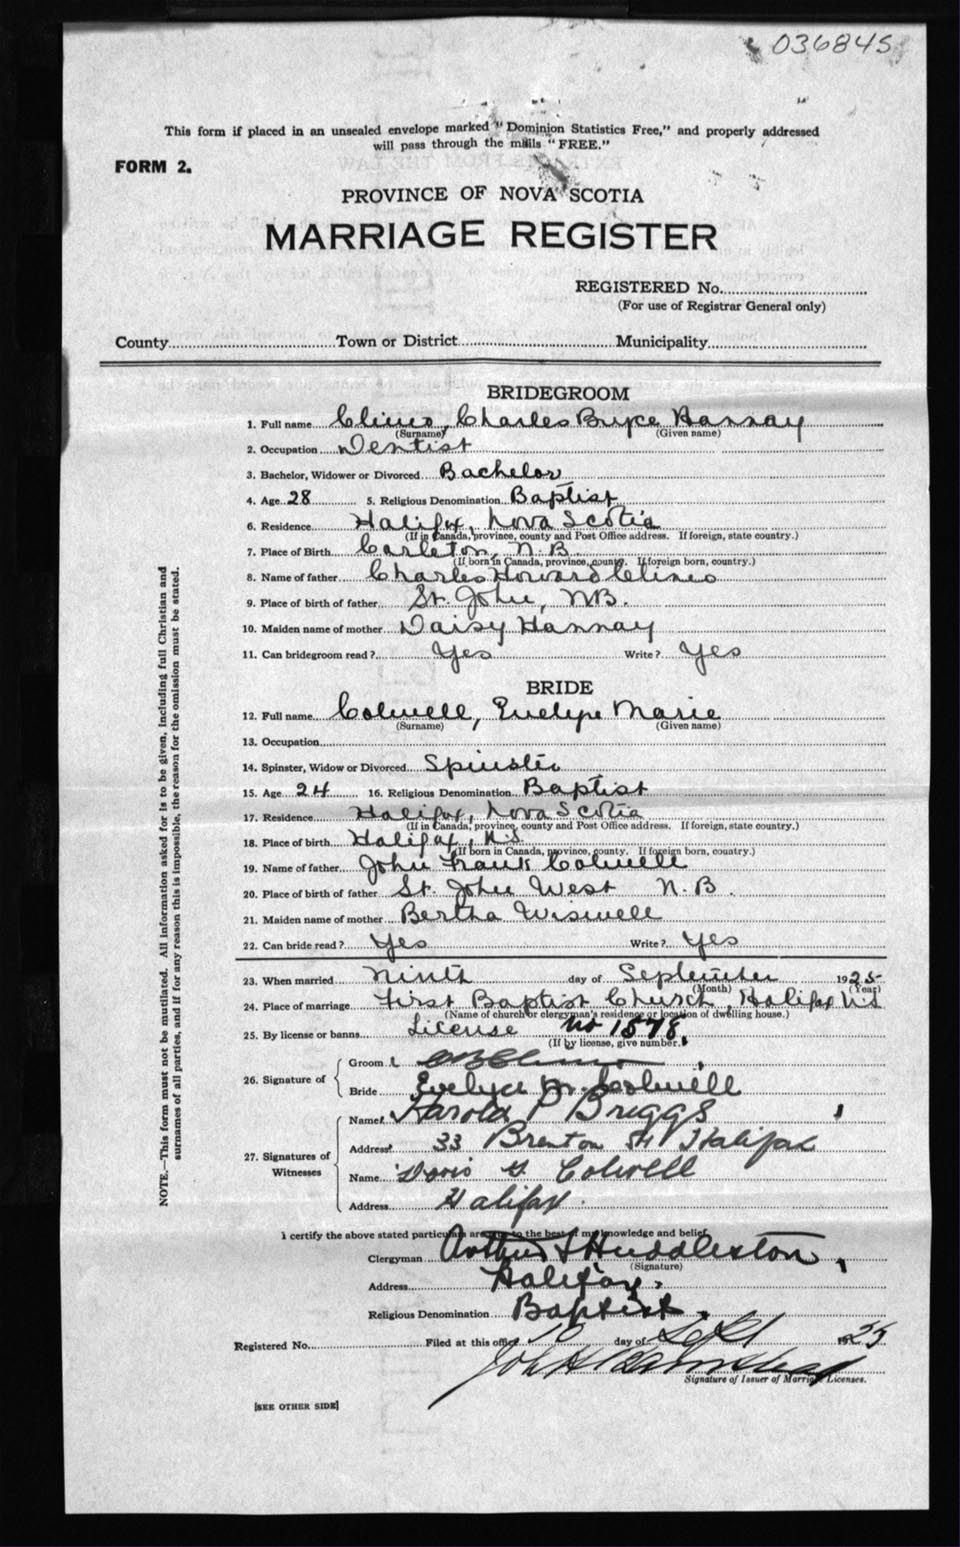 036845
This form if placed in an unsealed envelope marked "Dominion Statistics Free," and properly addressed
will pass through the mails "FREE."
FORM 2.
PROVINCE OF NOVA SCOTIA
MARRIAGE REGISTER
REGISTERED No.
(For use of Registrar General only)
County Town or District Municipality
BRIDEGROOM
1. Full name Climo, Charles Bryce Hannay
(Surname) (Given name)
2. Occupation Dentist
3. Bachelor, Widower or Divorced Bachelor
4. Age 28 5. Religious Denomination Baptist
6. Residence Halifax, Nova Scotia
(If in Canada, province, county and Post Office address. If foreign, state country.)
7. Place of Birth Carleton, N.B.
(If born in Canada, province, county. If foreign born, country.)
8. Name of father Charles Howard Climo
9. Place of birth of father St. John, N.B.
10. Maiden name of mother Daisy Hannay
11. Can bridegroom read? Yes Write? Yes
BRIDE
12. Full name Colwell, Evelyn Marie
(Surname) (Given name)
13. Occupation
14. Spinster, Widow or Divorced Spinster
15. Age 24 16. Religious Denomination Baptist
17. Residence Halifax, Nova Scotia
(If in Canada, province, county and Post Office address. If foreign, state country.)
18. Place of birth Halifax, N.S.
(If born in Canada, province, county. If foreign born, country.)
19. Name of father John Frank Colwell
20. Place of birth of father St. John West N.B.
21. Maiden name of mother Bertha Wiswell
22. Can bride read? Yes Write? Yes
23. When married Ninth day of September 1925
(Month) (Year)
24. Place of marriage First Baptist Church, Halifax N.S
(Name of church or clergyman's residence or location of dwelling house.)
25. By license or banns License No 1578
(If by license, give number.)
26. Signature of
Groom Climo
Bride Evelyn M. Colwell
27. Signatures of Witnesses
Name Harold P Briggs
Address 33 Brenton St Halifax
Name Doris G. Colwell
Address Halifax
I certify the above stated particulars are true to the best of my knowledge and belief.
Clergyman Arthur S Huddleston
(Signature)
Address Halifax.
Religious Denomination Baptist.
Registered No. Filed at this office 10 day of Sept 1925
John H Barnstead
Signature of Issuer of Marriage Licenses.
[SEE OTHER SIDE]
NOTE.—This form must not be mutilated. All information asked for is to be given, including full Christian and
surnames of all parties, and if for any reason this is impossible, the reason for the omission must be stated.